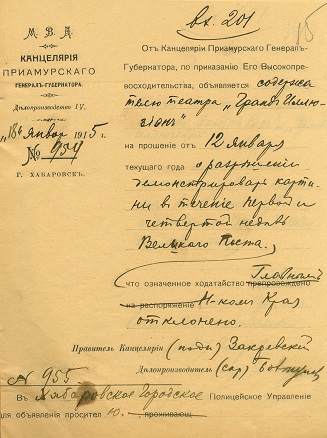 вх. 201
15
М. В. Д.
КАНЦЕЛЯРІЯ
ПРИАМУРСКАГО
ГЕНЕРАЛЪ-ГУБЕРНАТОРА.
Дѣлопроизводство IV.
"18" Января 1915 г.
№ 954
Г. ХАБАРОВСКЪ.
Отъ Канцеляріи Приамурскаго Генералъ-
Губернатора, по приказанію Его Высокопре-
восходительства, объявляется содержа
телю театра „Грандъ Иллю-
зіонъ"
на прошеніе отъ 12 Января
текущаго года о разрѣшеніи
демонстрировать карти
ны въ теченіе первой и
четвертой недѣль
Великаго Поста,
что означенное ходатайство препровождено Главнымъ
на распоряженіе Н-комъ Края
отклонено.
Правитель Канцеляріи (подп) Закревскій
Дѣлопроизводитель (скр)
№ 955
Въ Хабаровское Городское Полицейское Управленіе
для объявленія просител ю. проживающ